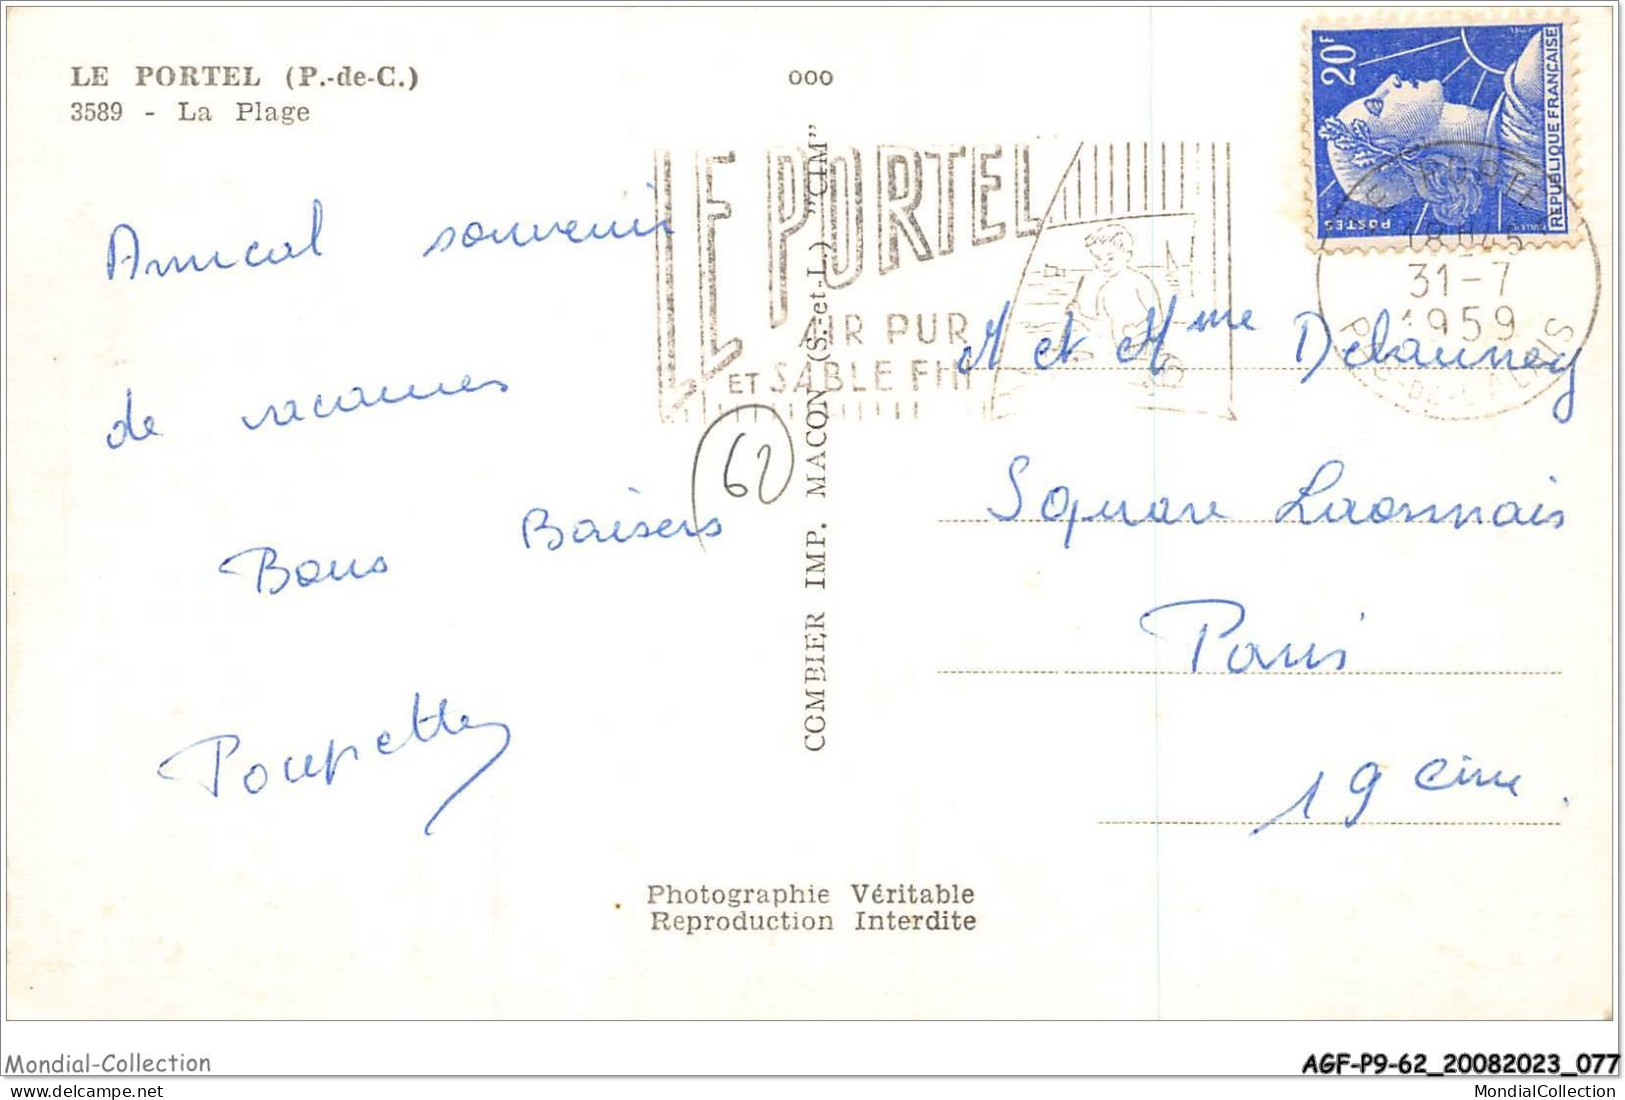 LE PORTEL (P.-de-C.)
3589 - La Plage
Amical souvenir
de vacances
Bons Baisers
Poupette
62
ooo
COMBIER IMP. MACON (S.-et-L.) "CIM"
LE PORTEL
AIR PUR
ET SABLE FIN
20F
POSTES
REPUBLIQUE FRANÇAISE
LE PORTEL
18H45
31-7
1959
PAS-DE-CALAIS
M et Mme Delaunay
Square Laonnais
Paris
19eme.
Photographie Véritable
Reproduction Interdite
Mondial-Collection
AGF-P9-62_20082023_077
MondialCollection